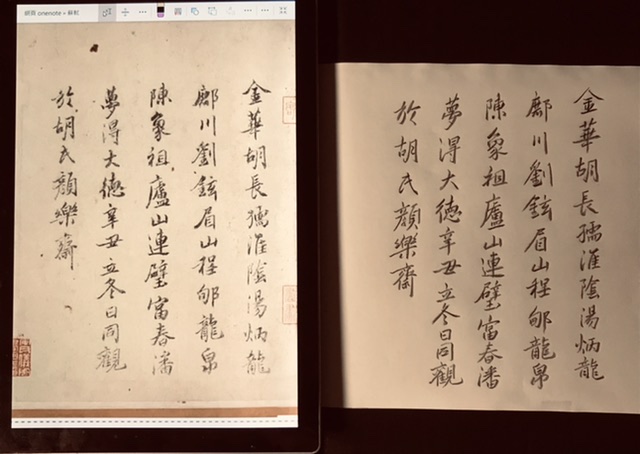 金華胡長孺淮陰湯炳龍
鄜川劉鉉眉山程郇龍帛
陳象祖廬山連璧富春潘
夢得大德辛丑立冬日同觀
於胡氏顏樂齋
金華胡長孺淮陰湯炳龍
鄜川劉鉉眉山程郇龍帛
陳象祖廬山連璧富春潘
夢得大德辛丑立冬日同觀
於胡氏顏樂齋